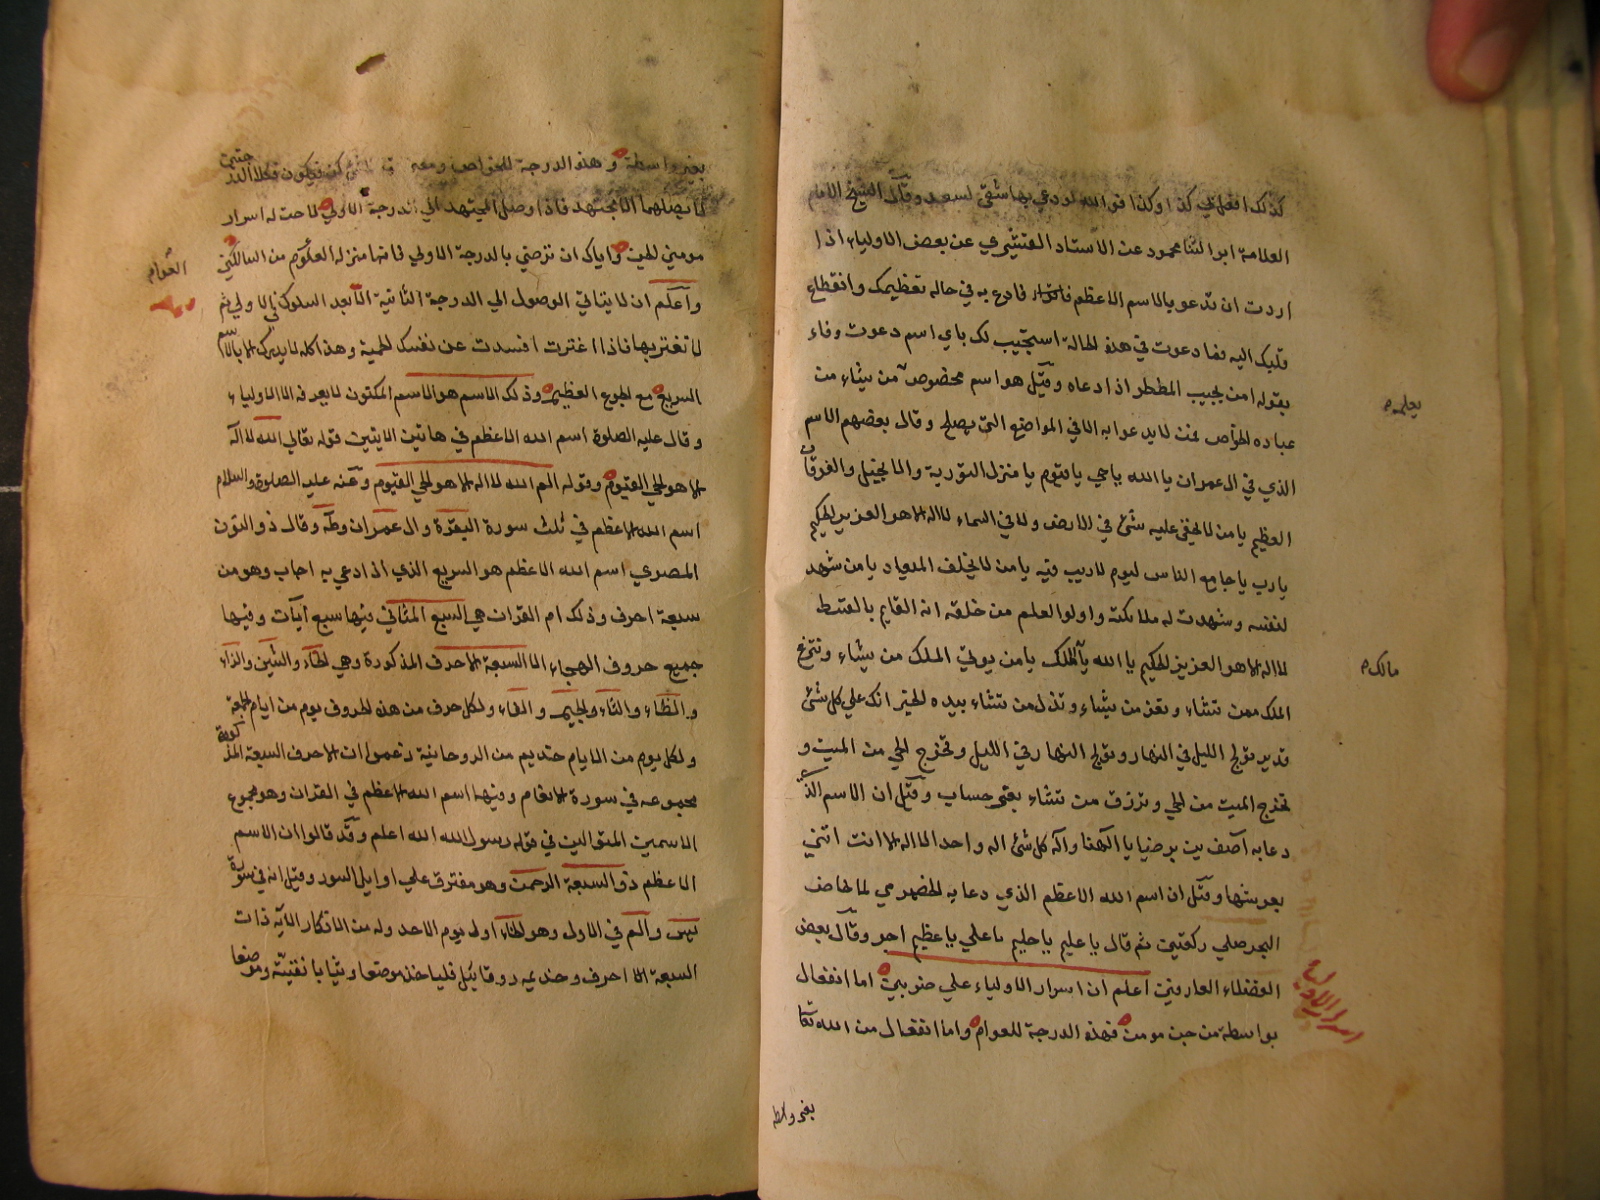 كذلك افعل لي كذا وكذا فوالله لو دعي بها شقي لسعد وقال الشيخ الامام
العلامة ابو الثنا محمود عن الاستاد القشيري عن بعض الاولياء اذا
اردت ان تدعو بالاسم الاعظم فادع به في حالة تعظيمك وانقطاع
قلبك اليه فما دعوت في هذه الحالة استجيب لك باي اسم دعوت وفاء
بقوله امن يجيب المظطر اذا دعاه وقيل هو اسم مخصوص من يشاء من
يعلمه
عباده الخواص لا يدعوا به الا في المواضع التي يصلح وقال بعضهم الاسم
الذي في ال عمران يا الله يا حي يا قيوم يا منزل التورية والانجيل والفرقان
العظيم يا من لا يخفي عليه شئ في الارض ولا في السماء لا اله الا هو العزيز الحكيم
يا رب يا جامع الناس ليوم لا ريب فيه يا من لا يخلف الميعاد يا من شهد
لنفسه وشهدت له ملائكته واولوا العلم من خلقه انه القايم بالقسط
لا اله الا هو العزيز الحكيم يا الله يا الملك يا من يوتي الملك من يشاء وتنزع
مالك
الملك ممن تشاء وتعز من يشاء وتذل من تشاء بيده الخير انك علي كل شئ
قدير تولج الليل في النهار وتولج النهار في الليل وتخرج الحي من الميت و
تخرج الميت من الحي وترزق من تشاء بغير حساب وقيل ان الاسم الذي
دعا به آصف بن برخيا يا الهنا واله كل شئ اله واحد الا اله الا انت اتني
بعرشها وقيل ان اسم الله الاعظم الذي دعا به الحضرمي لما خاض
البحر صلي ركعتين ثم قال يا عليم يا حليم يا علي يا عظيم اجو وقال بعض
الفضلاء العارفين اعلم ان اسرار الاولياء علي ضربين اما انفعال
بواسطة من جن مومن فهذه الدرجة للعوام واما انفعال من الله تعا
بغير واسطه
بغير واسطة وهذه الدرجة للخواص كن فيكون
لا يصلهما الا مجتهد فاذا وصل المجتهد الي الدرجة الاولي لاحت له اسرار
مومني الجن واياك ان ترضي بالدرجة الاولي فانها منزلة العكوم من السالكين
العوام
واعلم ان لا يتاتي الوصول الي الدرجة الثانية الا بعد السلوك في الاولي ثم
لا تغتر بها فاذا اغترت افسدت عن نفسك وهذا كله لا يدرك الا بالاسم
السريع مع الجوع العظيم وذلك الاسم هو الاسم المكتون لا يعرفه الا الاولياء
وقال عليه الصلوة اسم الله الاعظم في هاتين الايتين قوله تعالي الله لا اله
الا هو الحي القيوم وقوله الم الله لا اله الا هو الحي القيوم وعنه عليه الصلوة والسلام
اسم الله الاعظم في ثلث سورة البقرة وال عمران وطه وقال ذو النون
المصري اسم الله الاعظم هو السريع الذي اذا دعي به اجاب وهو من
سبعة احرف وذلك ام القران هي السبع المثاني فيها سبع آيات وفيها
جميع حروف الهجاء الا السبعة الاحرف المذكورة وهي الخاء والشين والزاء
والظاء والثاء والجيم والفاء ولكل حرف من هذه الحروف يوم من ايام الجمعة
ولكل يوم من الايام خديم من الروحانية زعموا ان الاحرف السبعة المذكورة
مجموعه في سورة الانعام وفيها اسم الله الاعظم في القران وهو مجموع
الاسمين المتواليين في قوله رسول الله الله اعلم وقد قالوا ان الاسم
الاعظم ذو السبعة الرحمن وهو مفترق علي اوايل السور وقيل انه في سورة
يس والم في الاول وهو الخاء اول يوم الاحد وله من الاذكار الاية ذات
السبعة الا احرف وخديمه روقايئل